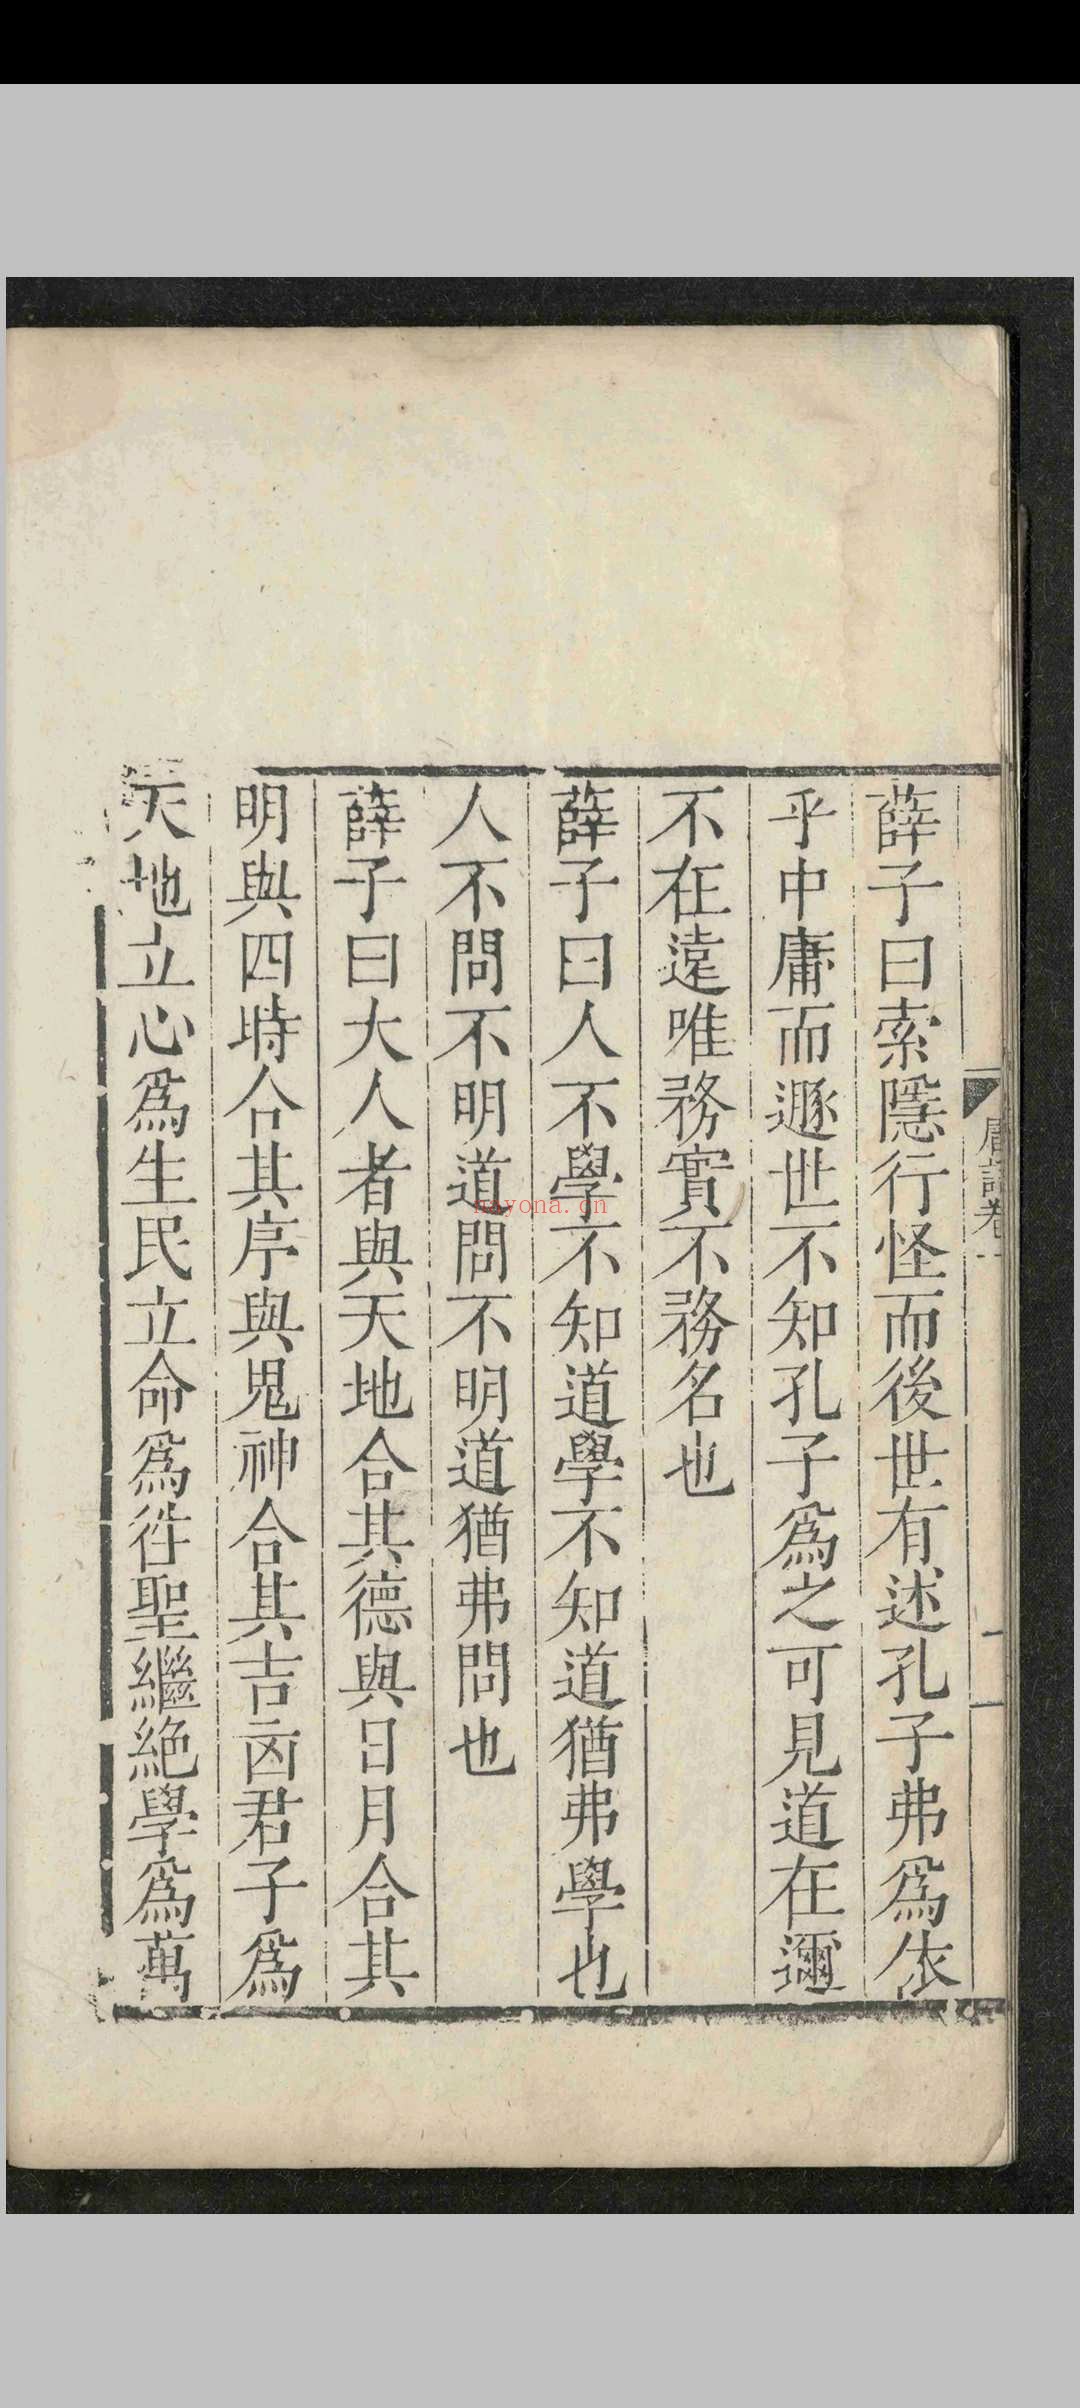 薛子曰索隱行怪而後世有述孔子弗爲依
乎中庸而遯世不知孔子爲之可見道在邇
不在遠唯務實不務名也
薛子曰人不學不知道學不知道猶弗學也
人不問不明道問不明道猶弗問也
薛子曰大人者與天地合其德與日月合其
明與四時合其序與鬼神合其吉凶君子爲
天地立心爲生民立命爲徃聖繼絶學爲萬
卷一
nayona.cn